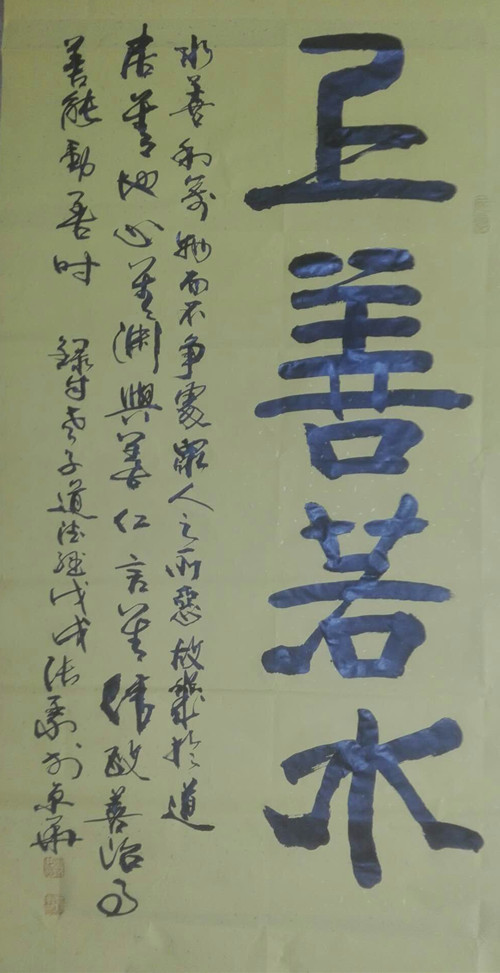 上善若水
水善利萬物而不争處眾人之所惡故幾於道
居善地心善渊與善仁言善政善治事
善能動善时 錄老子道德經戊戌张於京華